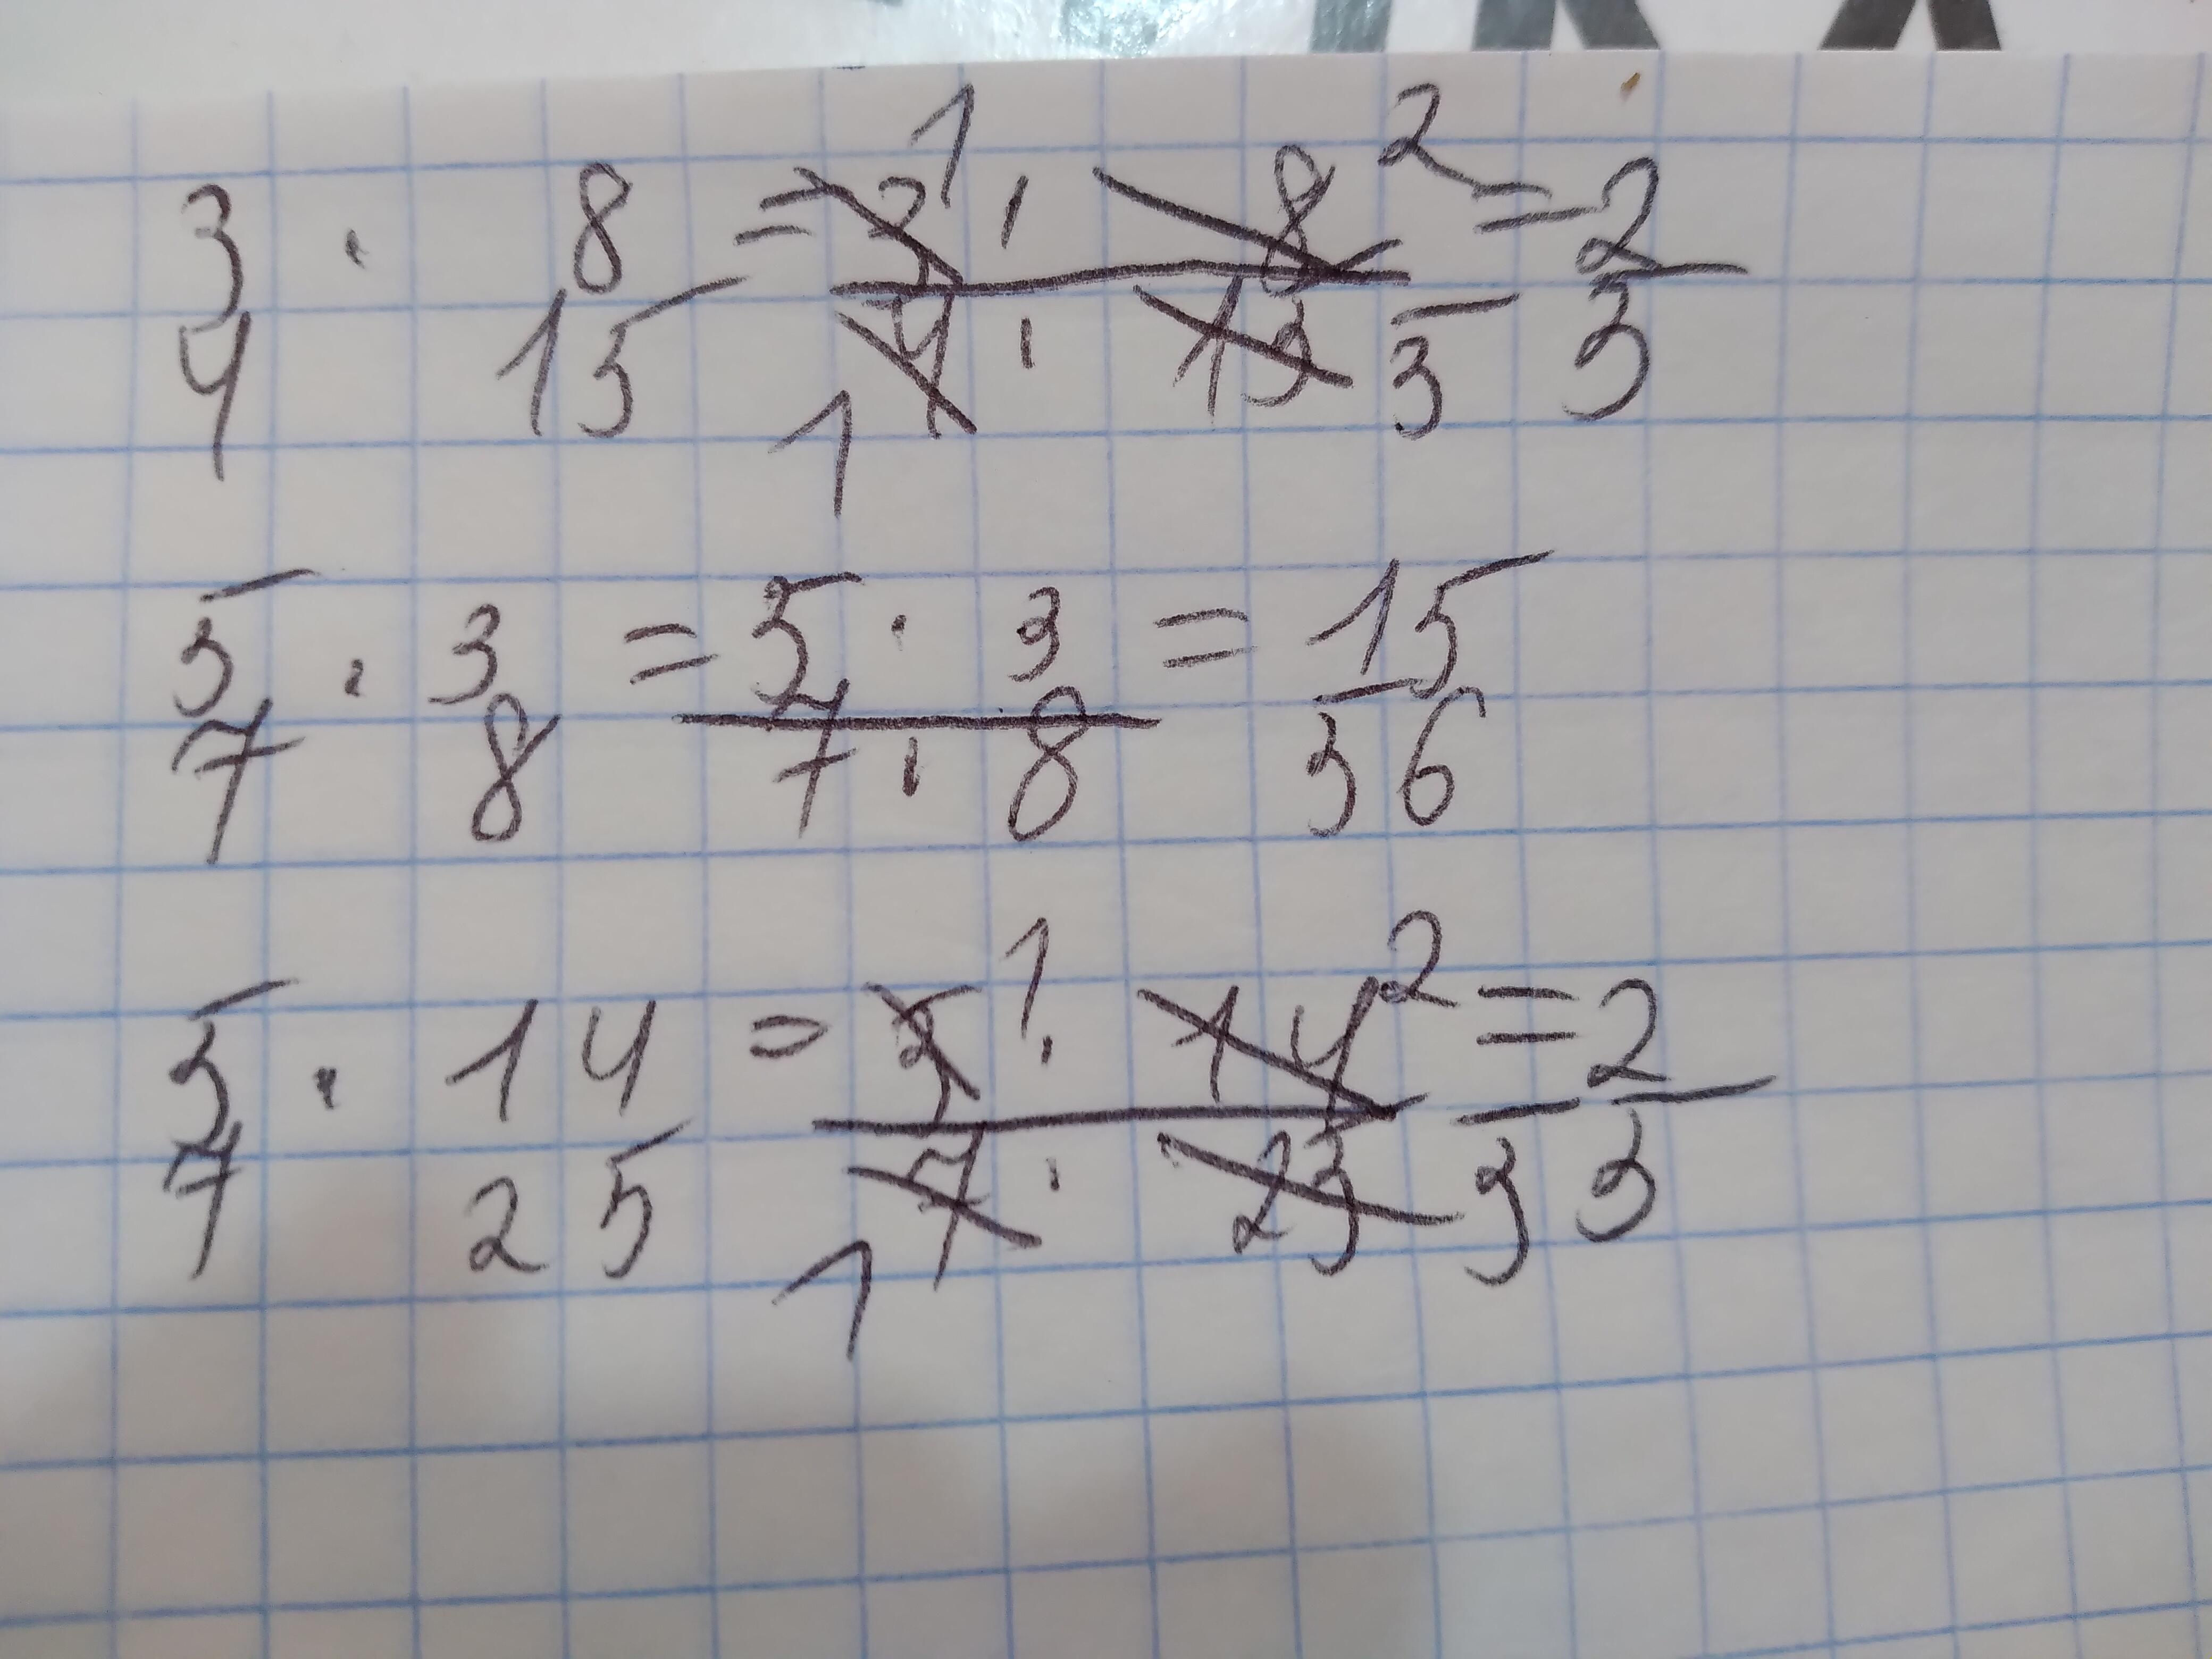 3/4 · 8/15 = 3¹ · 8² / 4₁ · 15 5 = 2/5
5/7 · 3/8 = 5 · 3 / 7 · 8 = 15/56
5/7 · 14/25 = 5¹ · 14² / 7₁ · 25 5 = 2/5